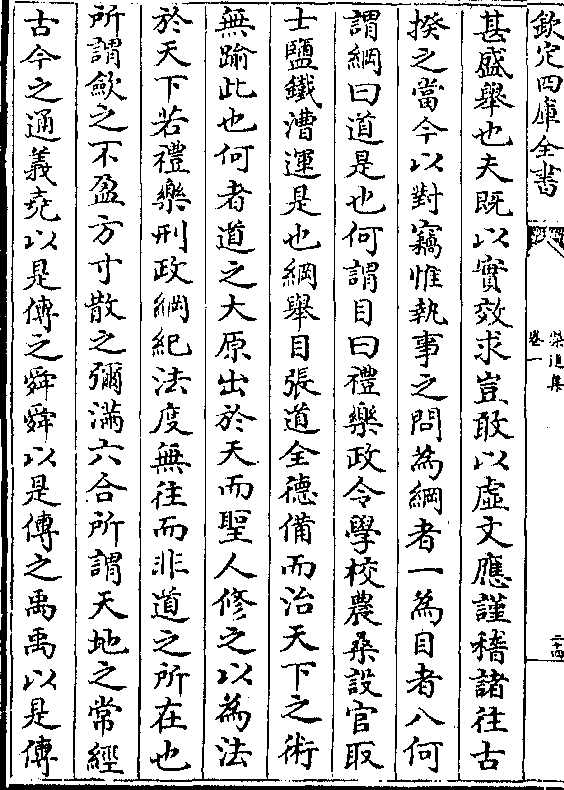 欽定四庫全書
卷一
二十四
甚盛舉也夫既以實效求豈敢以虛文應謹稽諸往古
揆之當今以對竊惟執事之問為綱者一為目者八何
謂綱曰道是也何謂目曰禮樂政令學校農桑設官取
士鹽鐵漕運是也綱舉目張道全德備而治天下之術
無踰此也何者道之大原出於天而聖人修之以為法
於天下若禮樂刑政綱紀法度無往而非道之所在也
所謂歛之不盈方寸散之彌滿六合所謂天地之常經
古今之通義堯以是傳之舜舜以是傳之禹禹以是傳